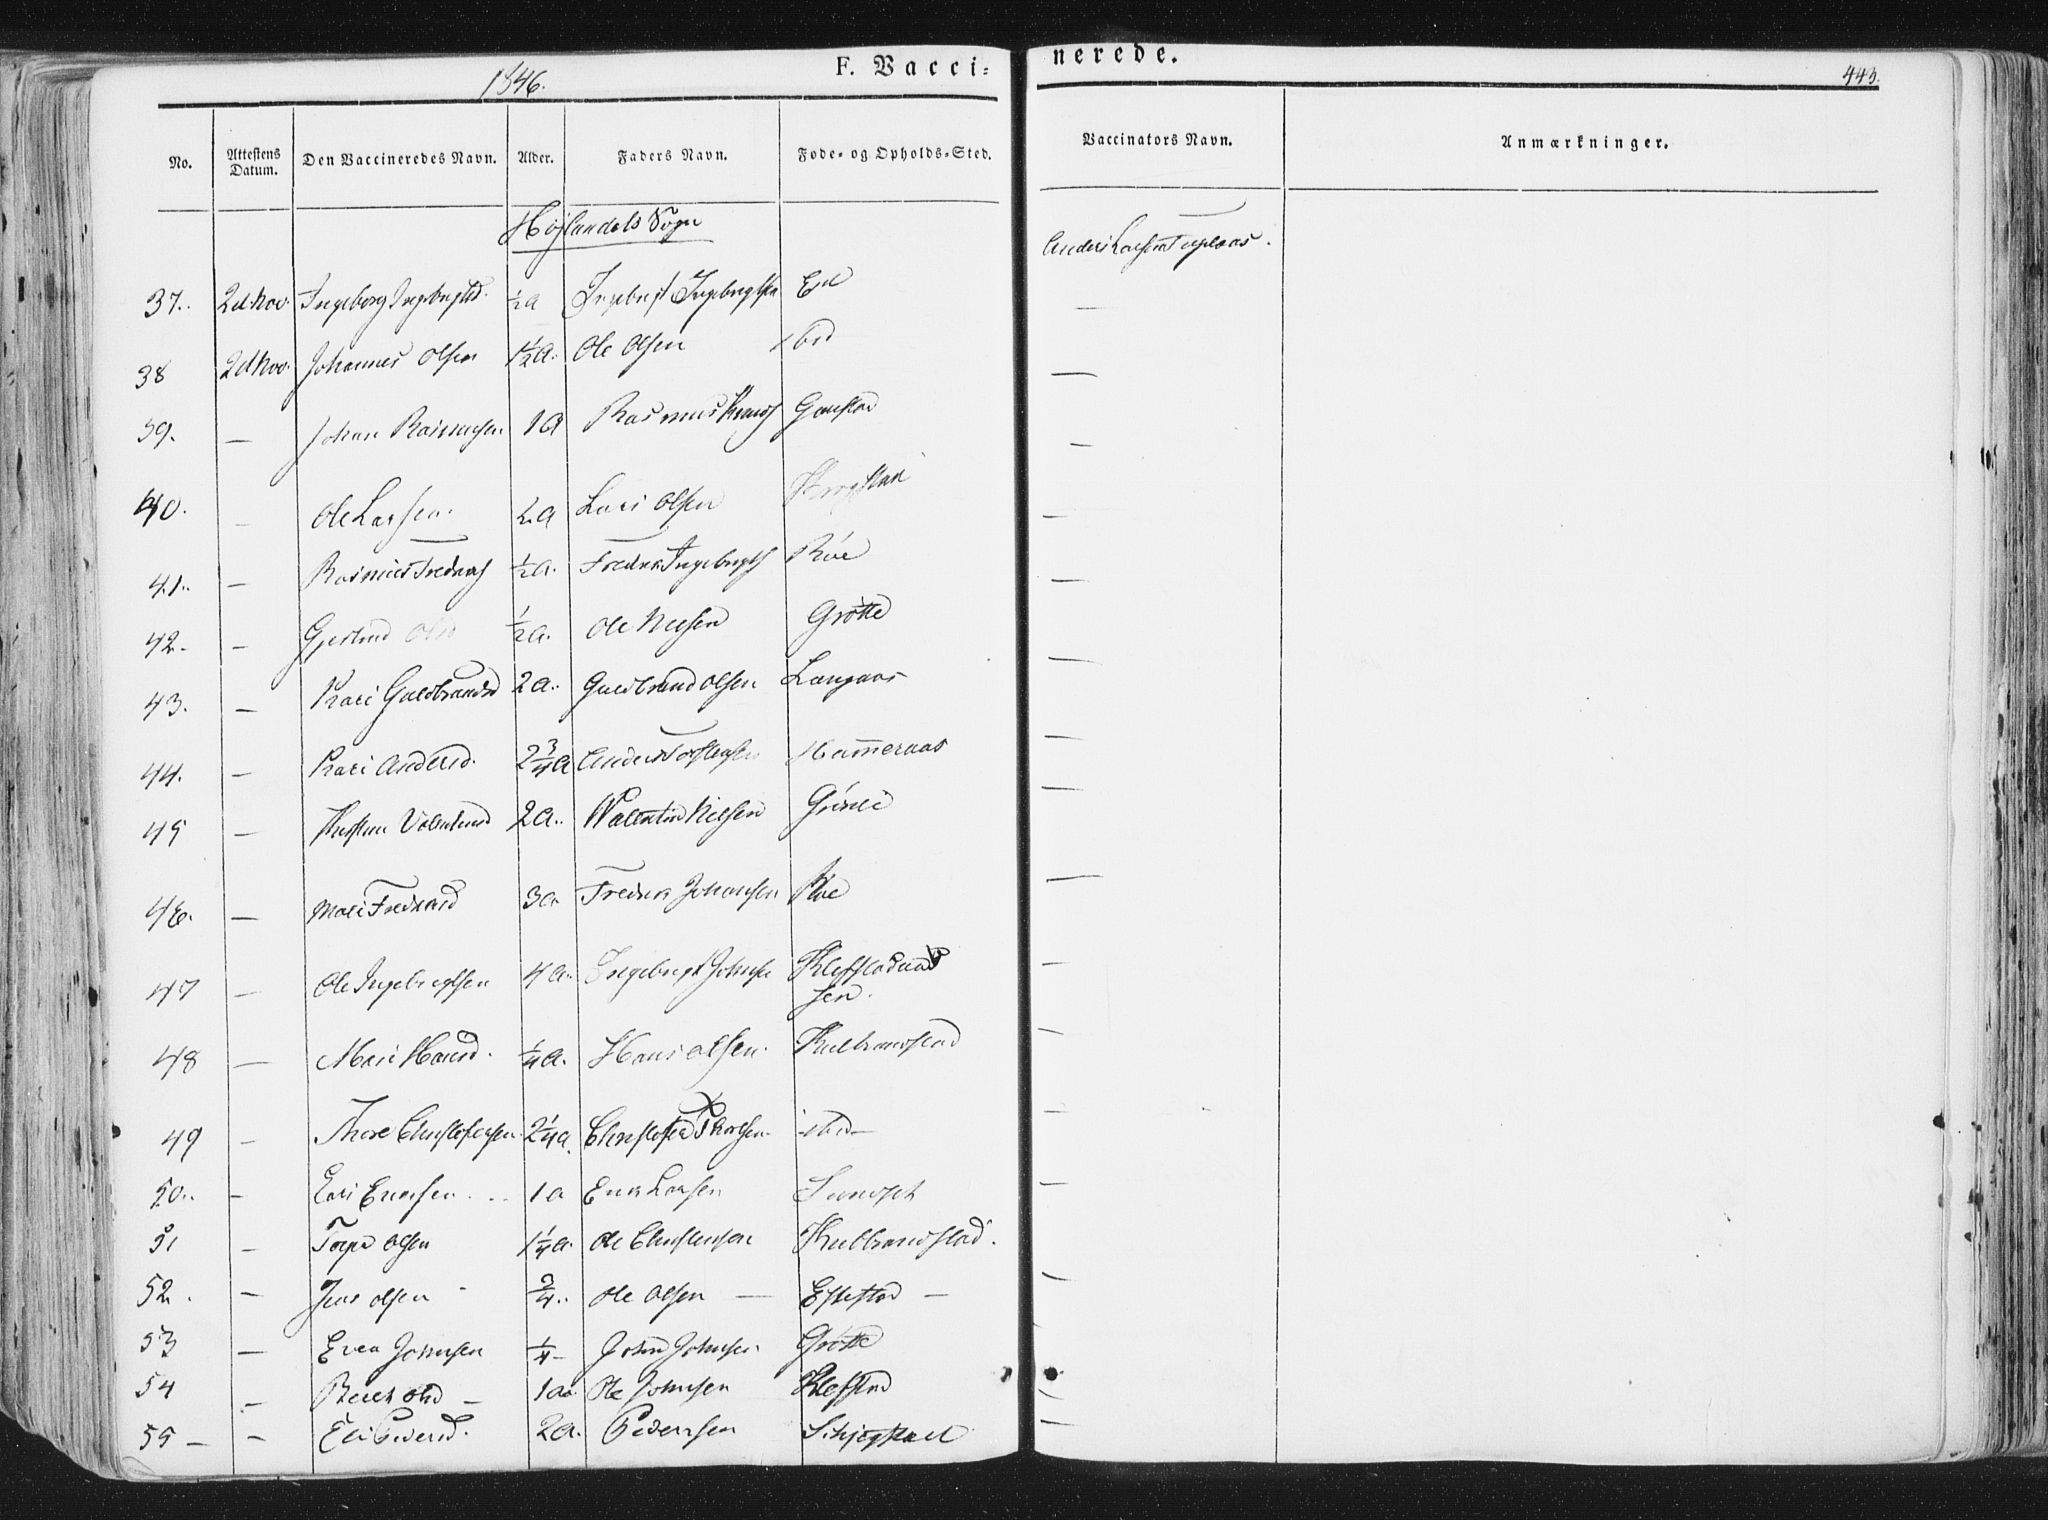 1846.
F. Vacci-
nerede.
443.
No.
Attestens Datum.
Den Vaccineredes Navn.
Alder.
Faders Navn.
Føde- og Opholds-Sted.
Vaccinators Navn.
Anmærkninger.
Højlandets Sogn
Anders Larsen
37. 2d Nov. Ingeborg Ingebrigtsd. ½ a Ingebrigt Ingebrigtsen Eid —
38 2d Nov. Johannes Olsen 1½ a. Ole Olsen ibid —
39. — Johan Rasmusen 1 a Rasmus Gaustad —
40. — Ole Larsen. 2 a Lars Olsen Krogstad —
41. — Rasmus Fredriks ½ a. Fredrik Ingebrigts Röe —
42. — Gjertrud Olsd ½ a. Ole Nielsen Grötte
43. — Kari Guldbrandsd 2 a. Guldbrand Olsen Langaas —
44. — Kari Andersd. 2¾ a Anders Torstensen Hammeraas —
45 — Valentinsd 2 a. Valentin Nielsen —
46. — Mali Fredriksd 3 a Fredrik Johansen Roe —
47 — Ole Ingebrigtsen 4 a. Ingebrigt Johnsen —
48 — Mari Hansd. ¼ a. Hans Olsen. Kulbrandstad —
49 — Thore Christofersen 2¼ a. Christofer Thoresen. ibid —
50. — Erichsen 1 a Erik Larsen
51 — Olsen 1¼ a. Ole Christensen Kulbrandstad.
52. — Jens Olsen ¾. Ole Olsen — —
53 — Even Johnsen ¼ John Johnsen Grötte
54 — Berit Olsd — 1 a. Ole Johnsen Klefstad —
55 — — Eli Pedersd. 2 a. Pedersen —